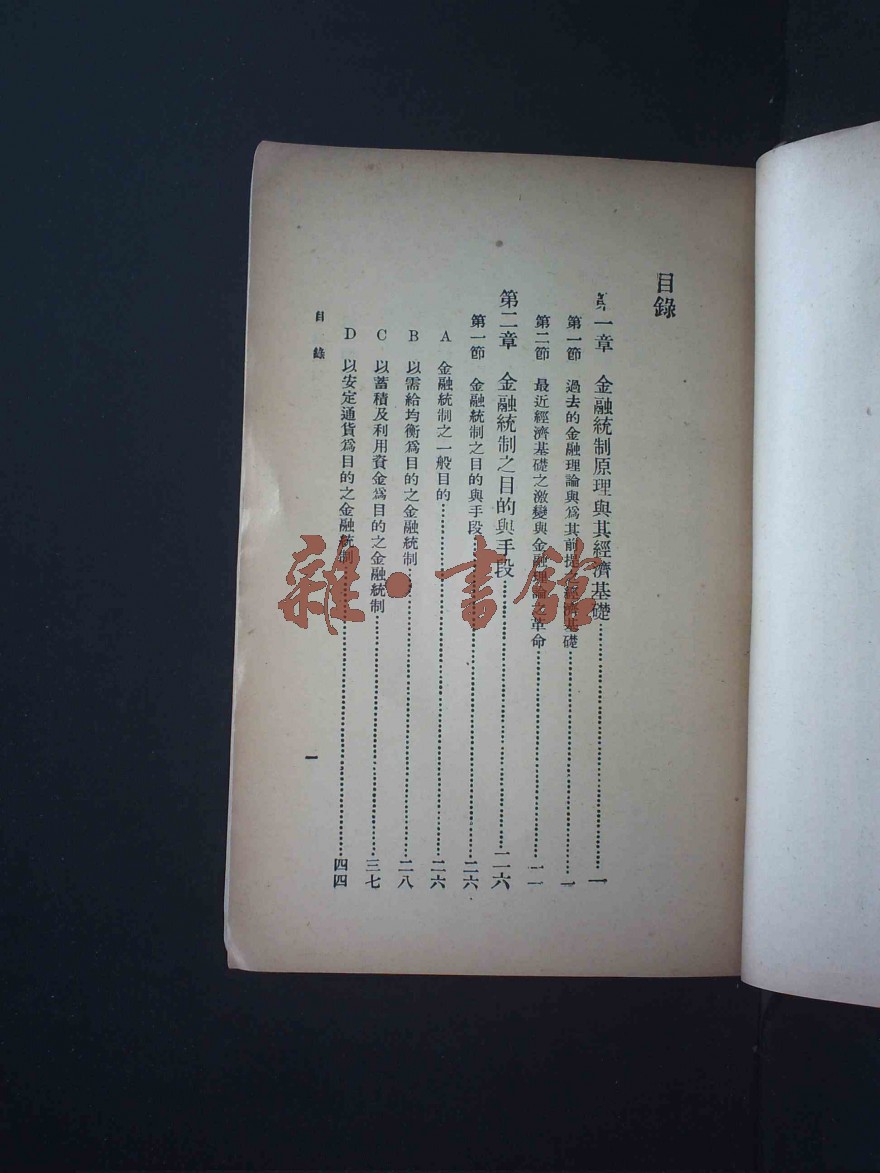 目錄
第一章　金融統制原理與其經濟基礎……一
第一節　過去的金融理論與爲其前提之經濟基礎……一
第二節　最近經濟基礎之激變與金融理論之革命……一一
第二章　金融統制之目的與手段……二六
第一節　金融統制之目的與手段……二六
A　金融統制之一般目的……二六
B　以需給均衡爲目的之金融統制……二八
C　以蓄積及利用資金爲目的之金融統制……三七
D　以安定通貨爲目的之金融統制……四四
目錄
一
雜·書館